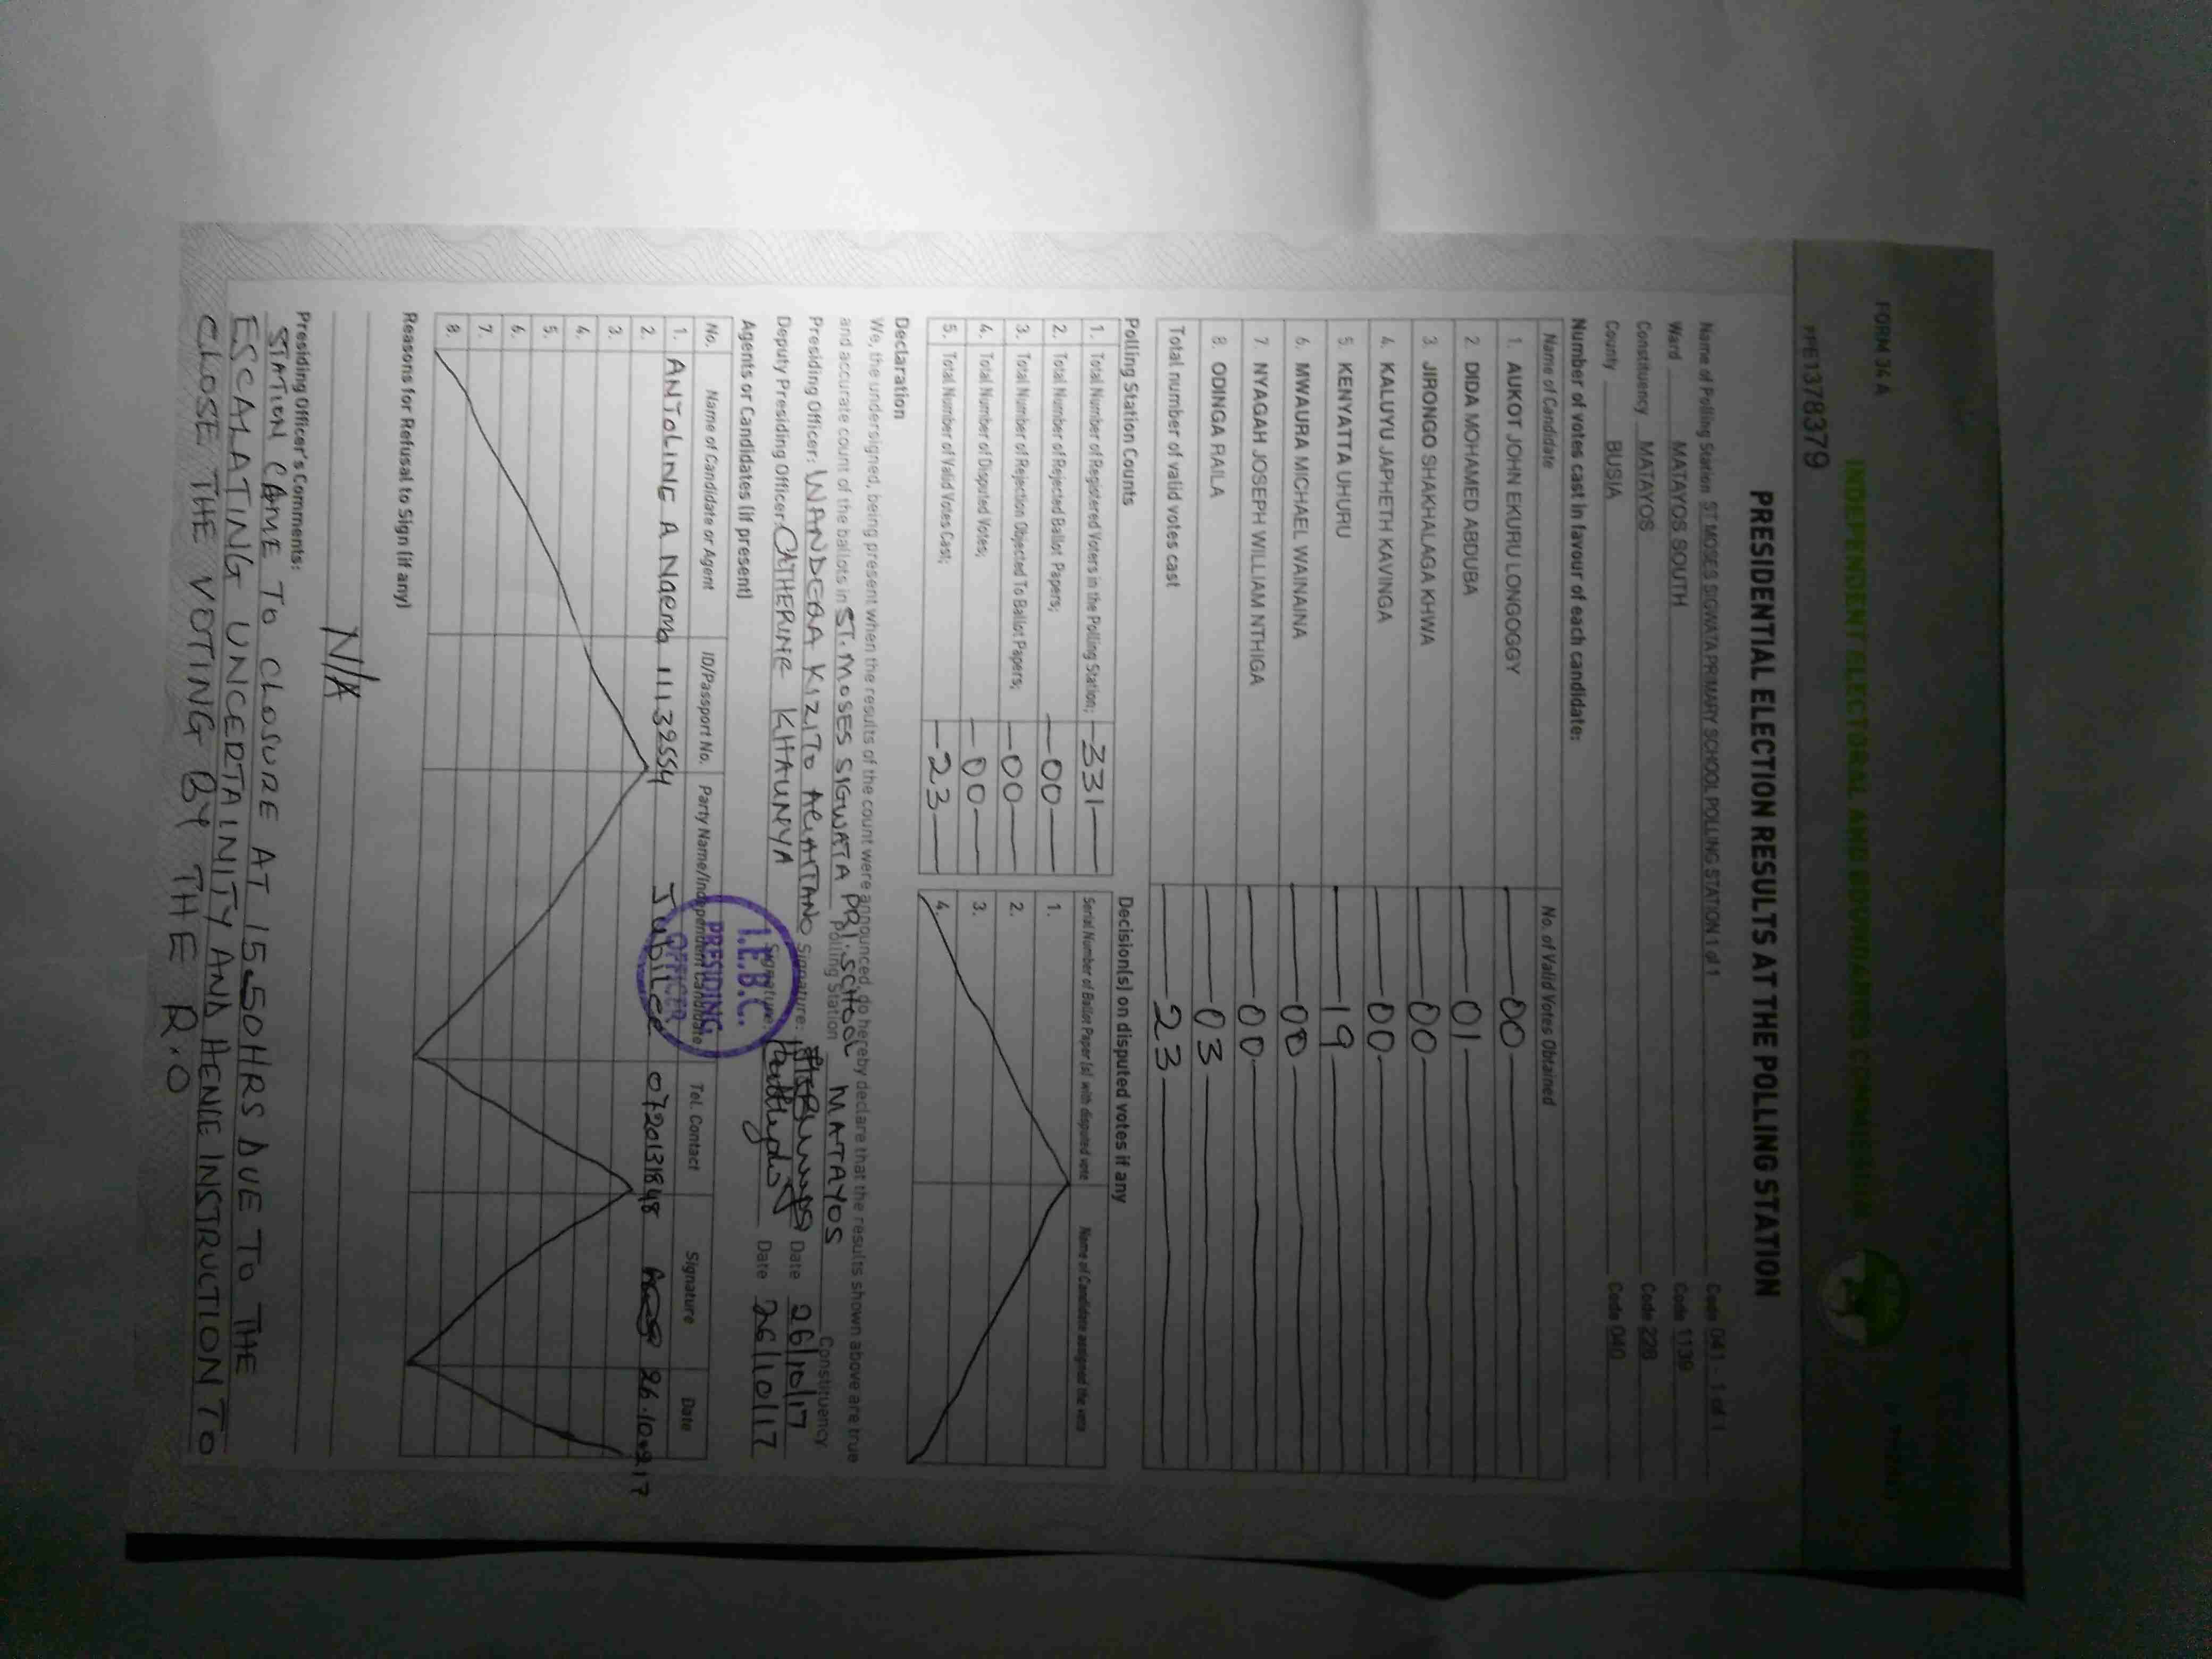 FORM 34 A
INDEPENDENT ELECTORAL AND BOUNDARIES COMMISSION
PRESIDENTIAL ELECTION RESULTS AT THE POLLING STATION
Name of Polling Station ST MOSES SIGWATA PRIMARY SCHOOL POLLING STATION 1 of 1 Code 041 - 1 of 1
Ward MATAYOS SOUTH Code 1139
Constituency MATAYOS Code 228
County BUSIA Code 040
Number of votes cast in favour of each candidate:
Name of Candidate No. of Valid Votes Obtained
1. AUKOT JOHN EKURU LONGOGGY 00
2. DIDA MOHAMED ABDUBA 01
3. JIRONGO SHAKHALAGA KHWA 00
4. KALUYU JAPHETH KAVINGA 00
5. KENYATTA UHURU 19
6. MWAURA MICHAEL WAINAINA 00
7. NYAGAH JOSEPH WILLIAM NTHIGA 00
8. ODINGA RAILA 03
Total number of valid votes cast 23
Polling Station Counts
1. Total Number of Registered Voters in the Polling Station; 331
2. Total Number of Rejected Ballot Papers; 00
3. Total Number of Rejection Objected To Ballot Papers; 00
4. Total Number of Disputed Votes; 00
5. Total Number of Valid Votes Cast; 23
Decision(s) on disputed votes if any
Serial Number of Ballot Paper (s) with disputed vote Name of Candidate assigned the vote
1.
2.
3.
4.
Declaration
We, the undersigned, being present when the results of the count were announced, do hereby declare that the results shown above are true
and accurate count of the ballots in ST. MOSES SIGWATA PRI. SCHOOL Polling Station MATAYOS Constituency
Presiding Officer: WANDERA KIZITO Signature: Date 26/10/17
Deputy Presiding Officer: CATHERINE KHAUNYA Signature: Date 26/10/17
I.E.B.C.
PRESIDING
OFFICER
Agents or Candidates (if present)
No. Name of Candidate or Agent ID/Passport No. Party Name/Independent Candidate Tel. Contact Signature Date
1. ANTOLINE A 11132554 Jubilee 0720131848
2.
3.
4.
5.
6.
7.
8.
Reasons for Refusal to Sign (if any)
N/A
Presiding Officer's Comments:
STATION CAME TO CLOSURE AT 15.50HRS DUE TO THE
ESCALATING UNCERTAINITY AND HENCE INSTRUCTION TO
CLOSE THE VOTING BY THE R.O